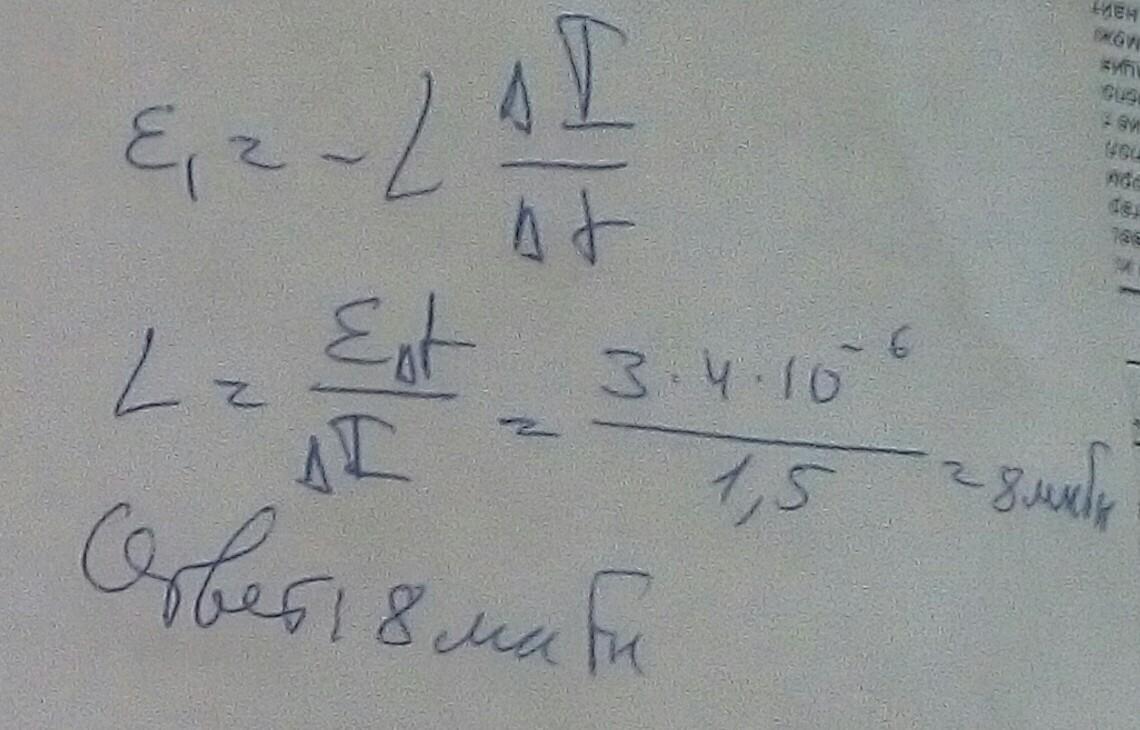 ε₁ = - L ΔI / Δt
L = εΔt / ΔI = 3·4·10⁻⁶ / 1,5 = 8 мкГн
Ответ: 8 мкГн